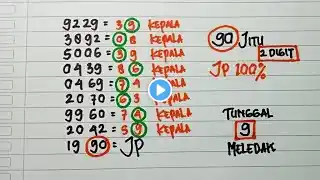 9229 = 39 KEPALA
3892 = 08 KEPALA
5006 = 39 KEPALA
0439 = 86 KEPALA
0469 = 74 KEPALA
2070 = 63 KEPALA
9960 = 74 KEPALA
2042 = 59 KEPALA
19 90 = JP
90 JITU
2 DIGIT
JP 100%
TUNGGAL
9
MELEDAK